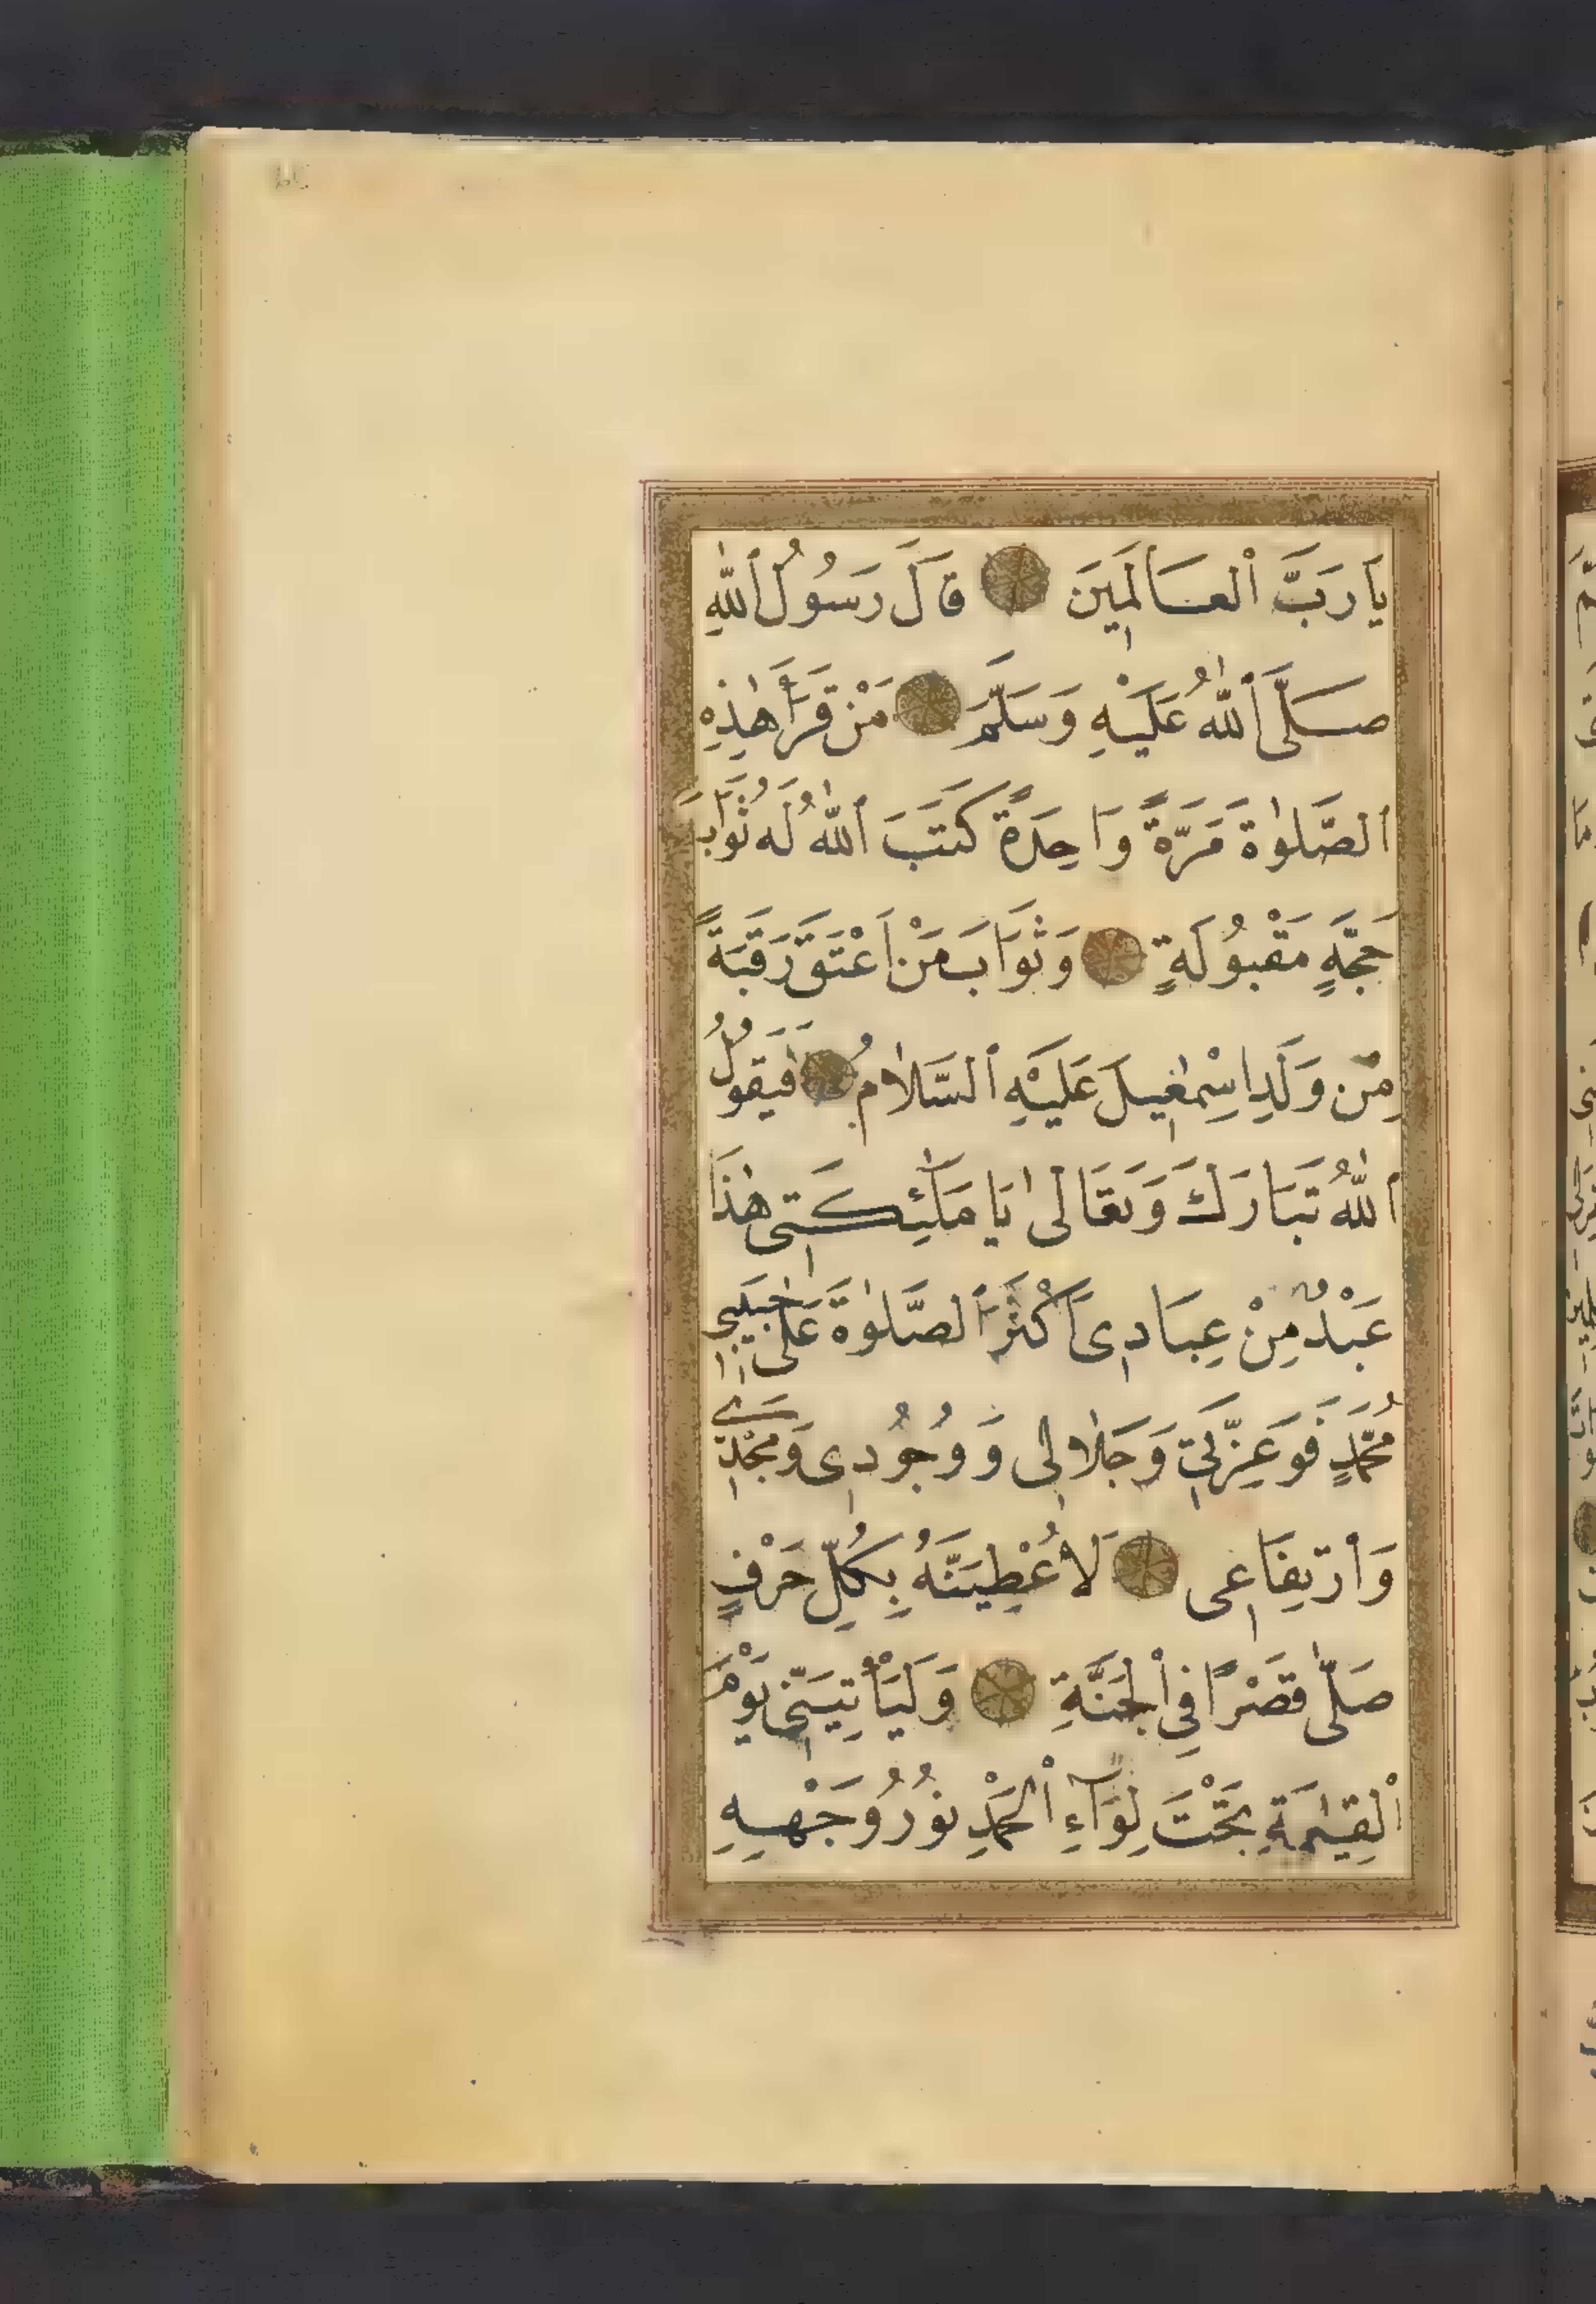 يَا رَبَّ ٱلْعَالَمِينَ قَالَ رَسُولُ ٱللّٰهِ
صَلَّى ٱللّٰهُ عَلَيْهِ وَسَلَّمَ مَنْ قَرَأَ هٰذِهِ
ٱلصَّلٰوةَ مَرَّةً وَاحِدَةً كَتَبَ ٱللّٰهُ لَهُ ثَوَابَ
حَجَّةٍ مَقْبُولَةٍ وَثَوَابَ مَنْ اَعْتَقَ رَقَبَةً
مِنْ وَلَدِ اِسْمٰعِيلَ عَلَيْهِ ٱلسَّلَامُ فَيَقُولُ
ٱللّٰهُ تَبَارَكَ وَتَعَالٰى يَا مَلٰئِكَتِى هٰذَا
عَبْدٌ مِنْ عِبَادِى اَكْثَرَ ٱلصَّلٰوةَ عَلٰى حَبِيبِى
مُحَمَّدٍ فَوَعِزَّتِى وَجَلَالِى وَوُجُودِى وَمَجْدِى
وَٱرْتِفَاعِى لَاُعْطِيَنَّهُ بِكُلِّ حَرْفٍ
صَلَّى قَصْرًا فِى ٱلْجَنَّةِ وَلَيَأْتِيَنِّى يَوْمَ
ٱلْقِيٰمَةِ تَحْتَ لِوَاءِ ٱلْحَمْدِ نُورُ وَجْهِهِ